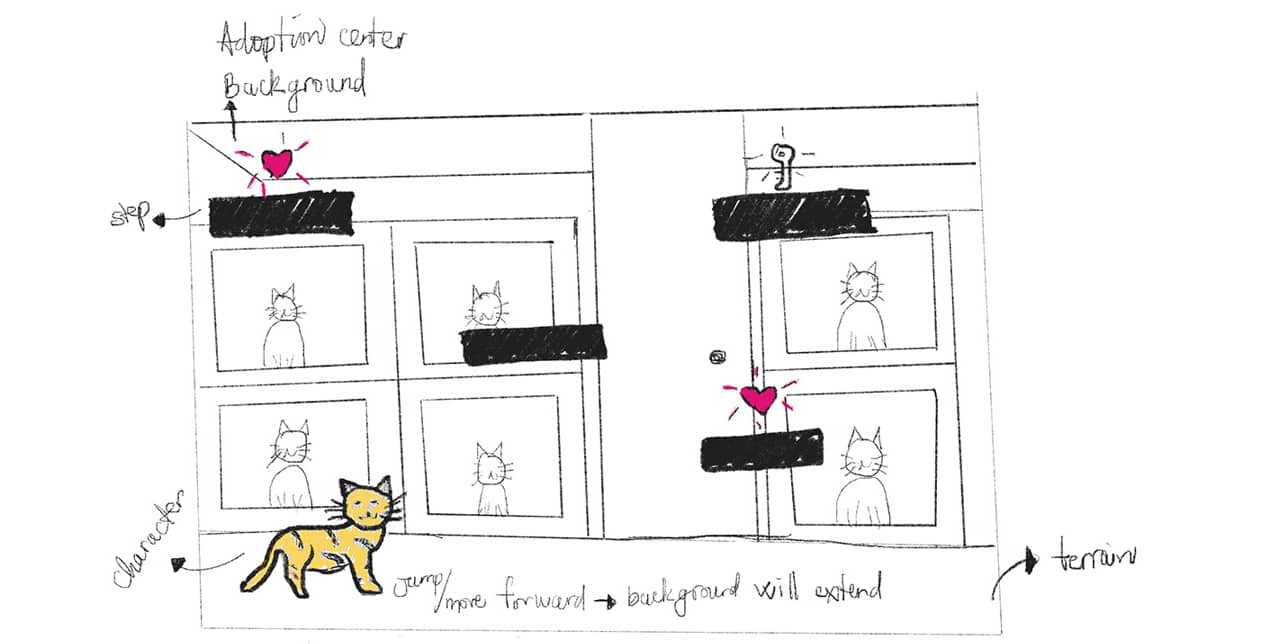 Adoption center
Background
step
character
Jump/
move forward → background will extend
terrain